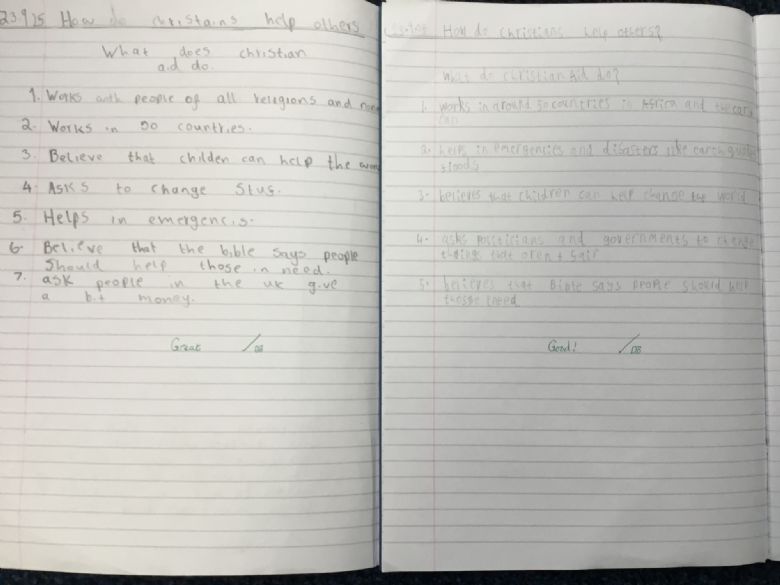 23.9.15 How do christains help others
What does christian
aid do.
1. Works with people of all religions and non
2. Works in 50 countries.
3. Believe that childen can help the wor
4. Asks to change Stug.
5. Helps in emergencis.
6. Believe that the bible says people
Should help those in need.
7. ask people in the uk give
a bit money.
Great /DB
How do christians help others?
What do christian Aid do?
1. works in around 50 countries in Africa and the car
2. helps in emergencies and disasters like earth quakes
floods
3. believes that children can help change the world
4. asks politicians and governments to change
things that aren't fair
5. believes that Bible says people should help
those need
Good! /DB